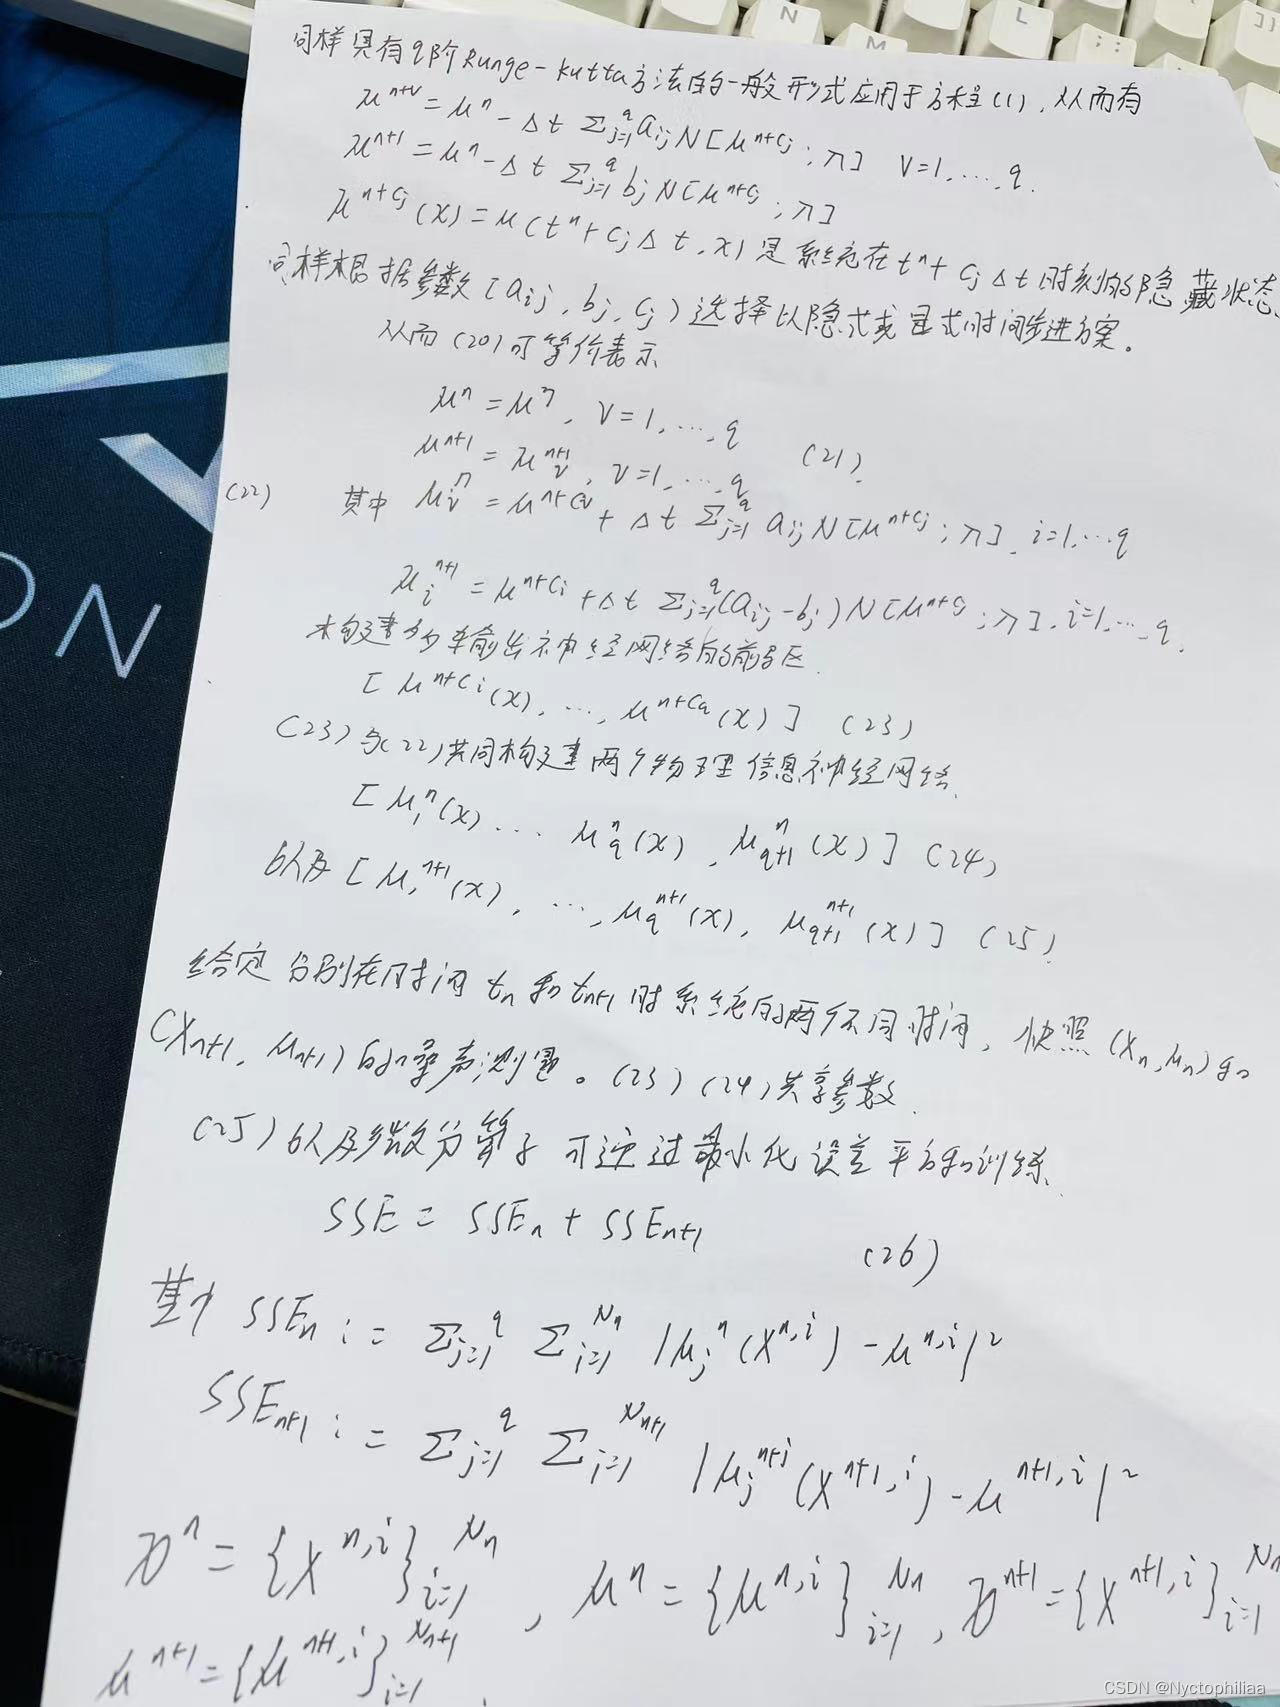 N
M
L
同样具有q阶Runge-Kutta方法的一般形式应用于方程(1),从而有
μ^{n+v} = μ^n - Δt Σ_{j=1}^q a_{ij} N[μ^{n+c_j};π] v=1,…,q.
μ^{n+1} = μ^n - Δt Σ_{j=1}^q b_j N[μ^{n+c_j};π]
μ^{n+c_j}(x) = μ(t^n + c_jΔt, x) 是系统在t^n + c_jΔt时刻的隐藏状态
同样根据参数[a_{ij}, b_j, c_j)选择以隐式或显式时间步进方案。
从而(20)可等价表示
μ^n = μ^n, v=1,…,q
μ^{n+1} = μ_v^{n+1}, v=1,…,q (21)
(22) 其中 μ_i^n = μ^{n+c_i} + Δt Σ_{j=1}^q a_{ij} N[μ^{n+c_j};π], i=1,…q
μ_i^{n+1} = μ^{n+c_i} + Δt Σ_{j=1}^q (a_{ij}-b_j) N[μ^{n+c_j};π], i=1,…,q.
构建多输出神经网络的前
[μ^{n+c_i}(x), …, μ^{n+c_q}(x)] (23)
(23)与(22)共同构建两个物理信息神经网络
[μ_1^n(x) … μ_q^n(x), μ_{q+1}^n(x)] (24)
以及[μ_1^{n+1}(x), …, μ_q^{n+1}(x), μ_{q+1}^{n+1}(x)] (25)
给定分别在时间t_n和t_{n+1}时系统的两个不同时间,快照(x_n, μ_n)和
(x_{n+1}, μ_{n+1})的噪声测量。(23)(24)共享参数
(25)以及微分算子可通过最小化误差平方和训练
SSE = SSE_n + SSE_{n+1} (26)
其中 SSE_n := Σ_{j=1}^q Σ_{i=1}^{N_n} |μ_j^n(x^{n,i}) - μ^{n,i}|²
SSE_{n+1} := Σ_{j=1}^q Σ_{i=1}^{N_{n+1}} |μ_j^{n+i}(x^{n+1,i}) - μ^{n+1,i}|²
^n = {x^{n,i}}_{i=1}^{N_n}, μ^n = {μ^{n,i}}_{i=1}^{N_n}, ^{n+1} = {x^{n+1,i}}_{i=1}^{N_n}
μ^{n+1} = {μ^{n+1,i}}_{i=1}^{N_{n+1}}
ON
CSDN @Nyctophiliaa